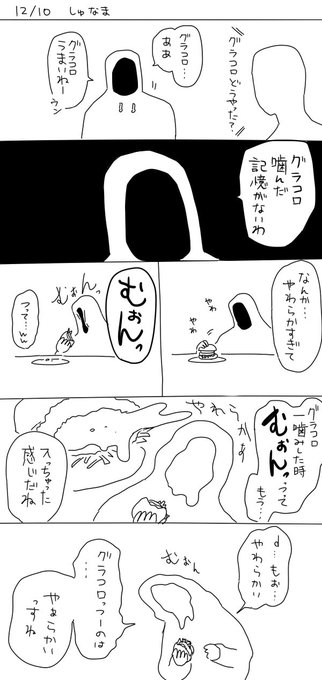 12/10 しゅなま
グラコロどうやった?
グラコロ…
ああ
グラコロ
うまいねー
ウン
グラコロ
噛んだ
記憶がないわ
なんか…
やわらかすぎて
やわ
やわ
むぉんっ
むぉんっ
って…w
グラコロ
一噛みした時
むぉんっって
もう…
やわらかぁ
入っちゃった
感じだね
d…もぉ…
やわらかい
むぉん
グラコロっつーのは
…
やぁらかい
っすね